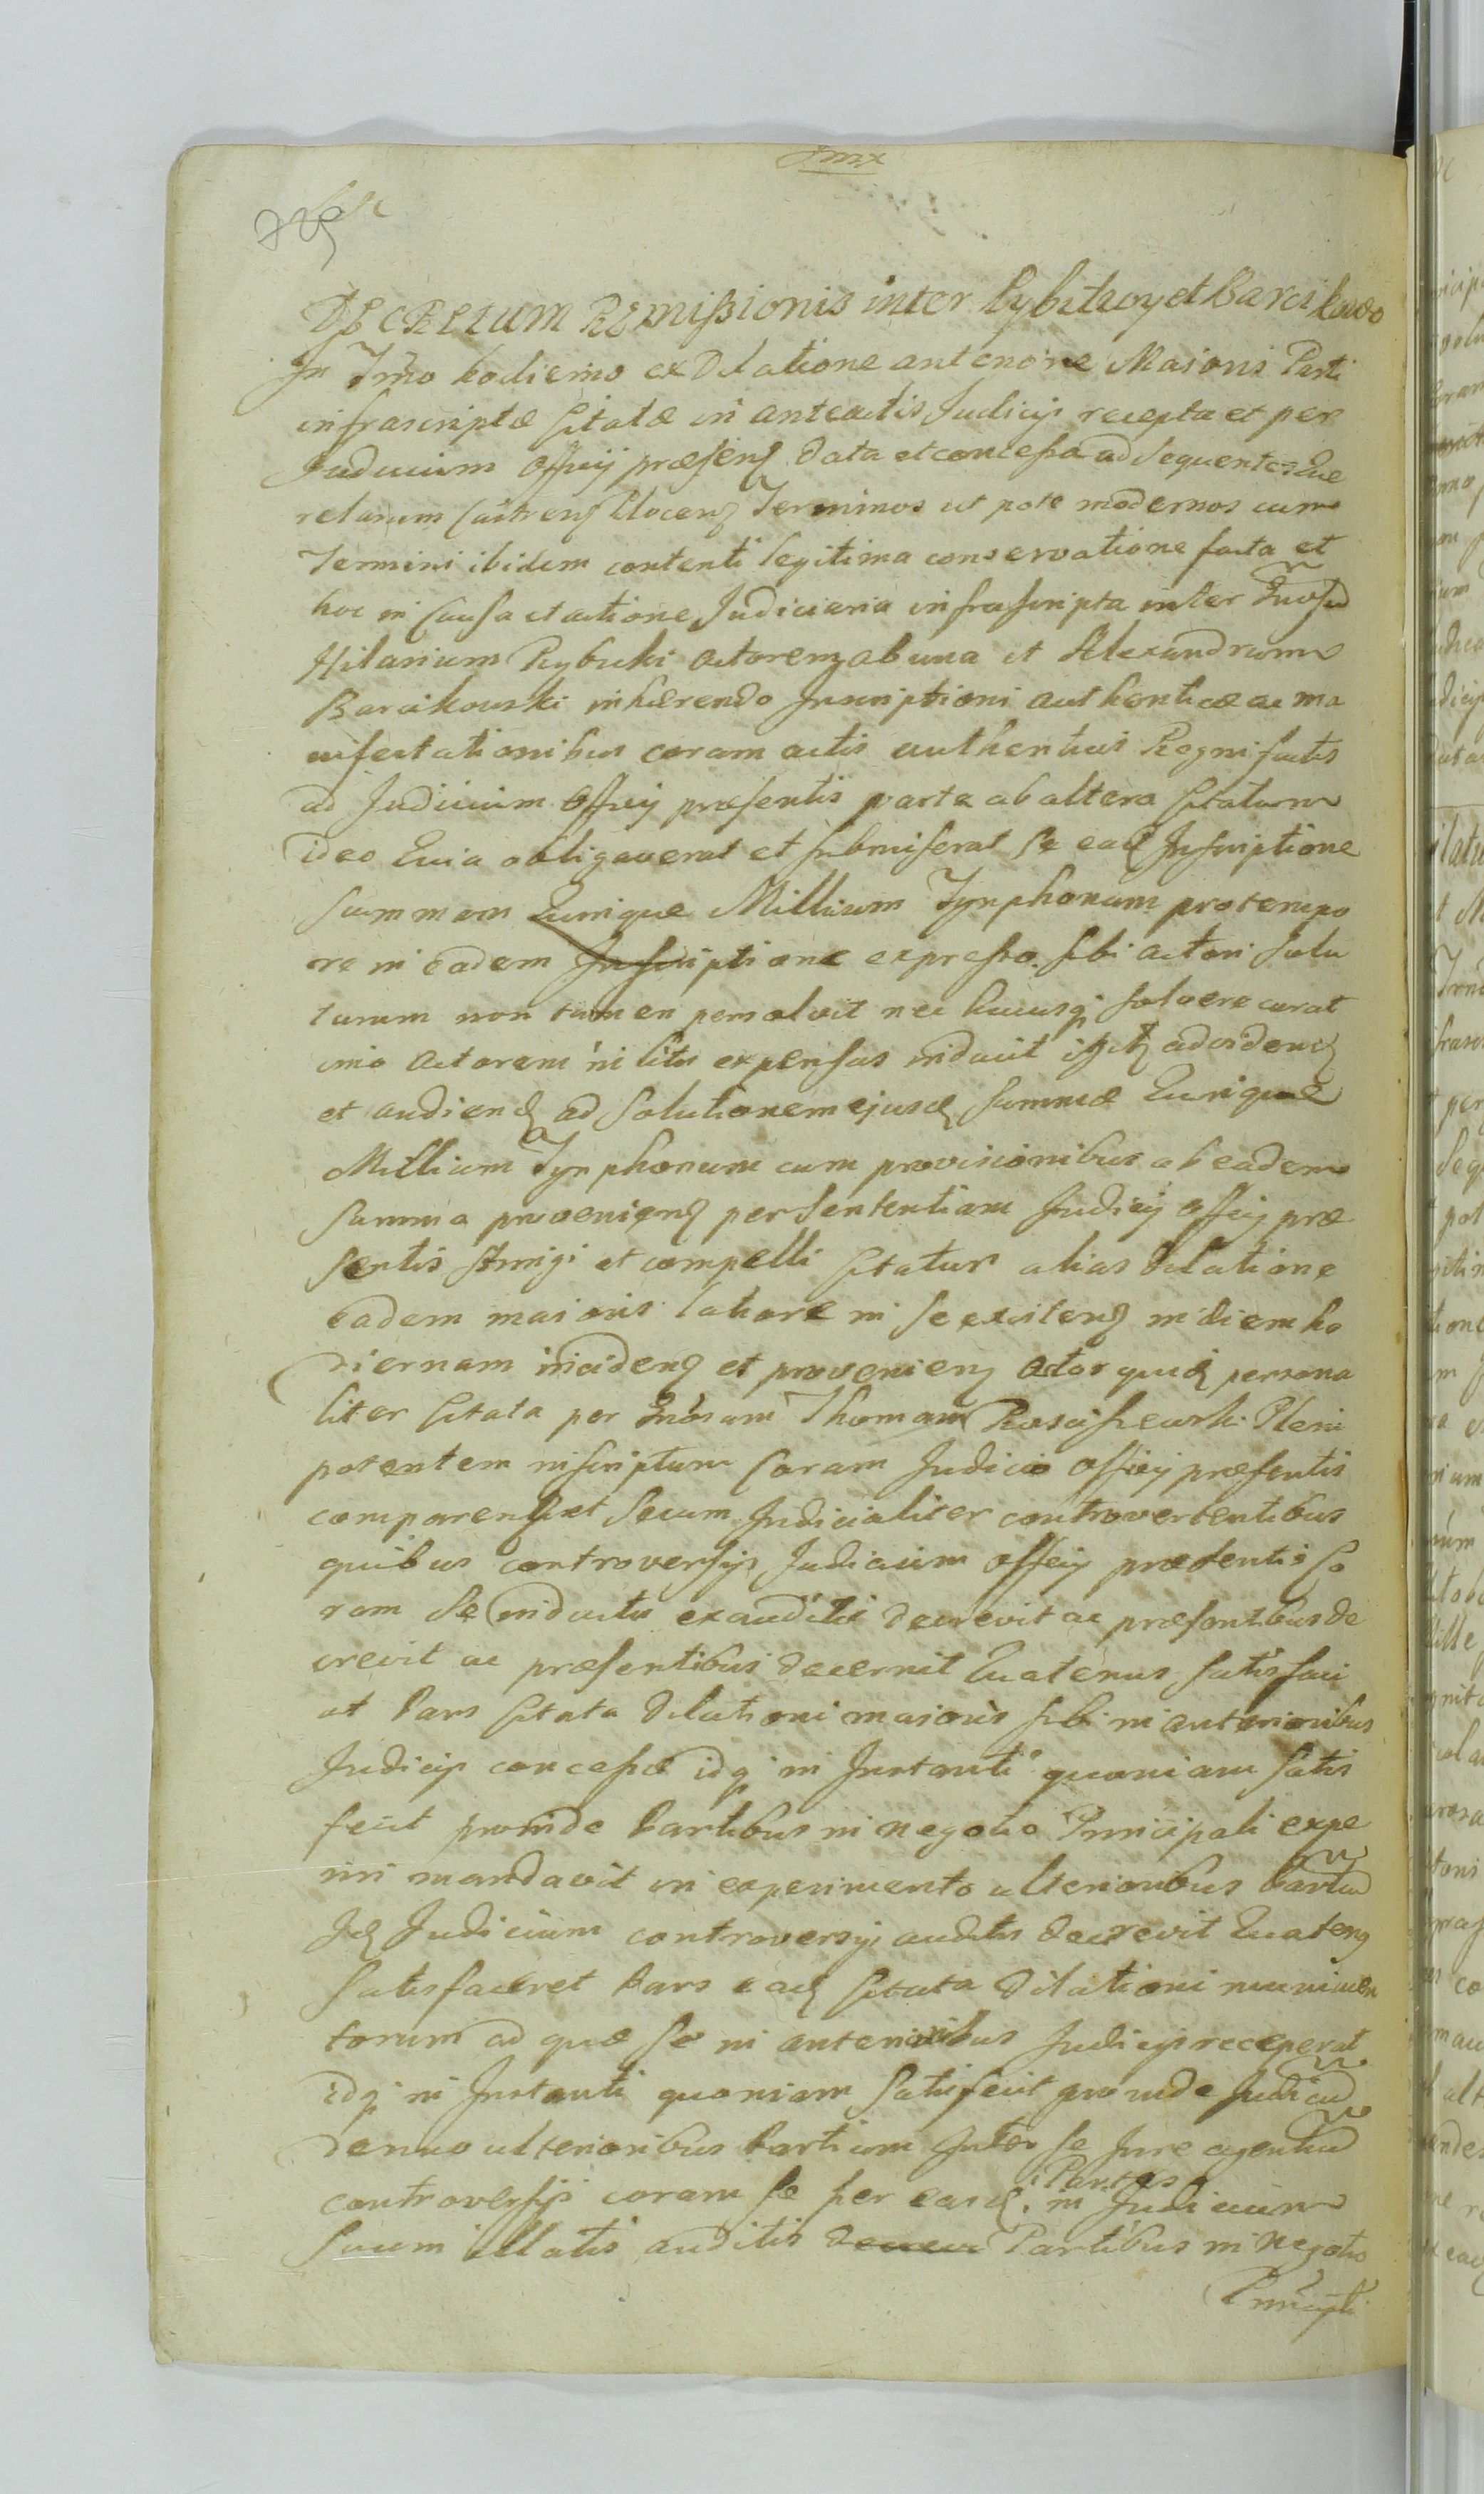 729
Decretum Remissionis inter Rybitwy et Barcikowo
In Trno hodierno ex Dilatione anteriore Maioris Parti
infrascriptæ Citatæ in anteactis Judicijs recepta et per
Judicium Officij præsens data et concessa ad Sequentes Que
relarum Castrens Plocens Terminos ut pote modernos cum
Termini ibidem contenti legitima conservatione facta et
hoc in Causa et actione Judiciaria infrascripta inter
Hilarium Rybicki Actorem ab una et Alexandrum
Barcikowski inhærendo Inscriptioni authenticæ ac ma
nifestationibus coram actis authenticis Regni factis
ad Judicium Officij præsentis parte ab altera Citatum
ideo Quia obligaverat et submiserat se ead Inscriptione
summam Quinque Millium Tynphonum pro tempo
re in eadem Inscriptione expresso sibi actori solu
turum non tamen persolvit nec hucusq solvere curat
imo Actorem in litis expensas inducit ad videnđ
et audienđ ad Solutionem ejusđ summæ Quinque
Millium Tynphonum cum provisionibus ab eadem
summa provenienđ per Sententiam Judicij Officij præ
sentis stringi et compelli Citatur alias Dilatione
eadem maioris labore in se existenđ in diem ho
diernam incidens et proveniens Actor quiđ persona
liter Citata per Thomam Rosciszewski Pleni
potentem inscriptum Coram Judicio Officij præsentis
comparent et secum Judicialiter controvertentibus
quibus controversijs Judicium Officij præsentis Co
ram Se inductis exauditis decrevit ac præsentibus de
crevit ac præsentibus decernit Quatenus satisfaci
at Pars Citata Dilationi maioris sibi in anterioribus
Judicijs concessæ idq in Instanti quoniam satis
fecit proinde Partibus in negotio Principali expe
riri mandavit in experimento ulterioribus
Jđ Judicium controversijs auditis decrevit Quatenus
Satisfaceret Pars eađ Citata Dilationi munimen
torum ad quæ se in anterioribus Judicijs receperat
idq in Instanti quoniam satisfecit proinde
denuo ulterioribus Partium Inter se Jure agentium
controversijs coram se per easđ Partes in Judicium
suum illatis auditis Partibus in Negotio
Principali